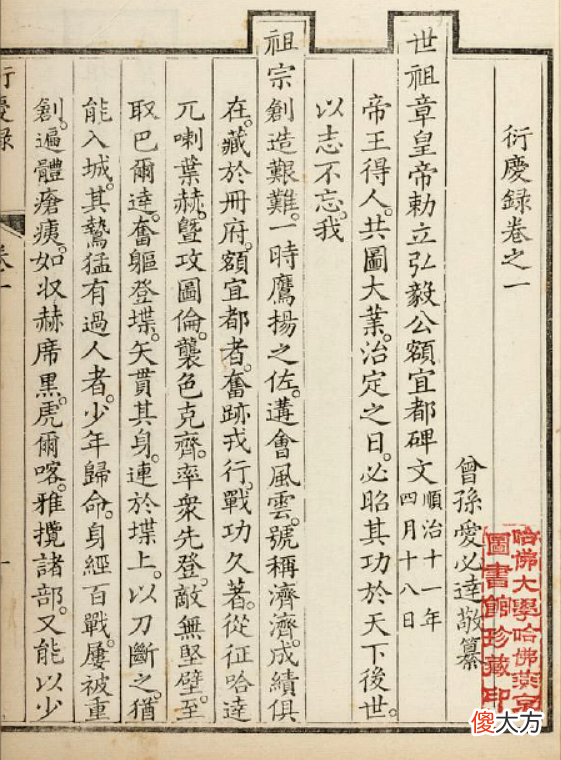 衍慶録卷之一
曾孫愛必達敬纂
世祖章皇帝勅立弘毅公額宜都碑文順治十一年四月十八日
帝王得人。共圖大業。治定之日。必昭其功於天下後世。
以志不忘。我
祖宗創造艱難。一時鷹揚之佐。遘會風雲。號稱濟濟。成績俱
在。藏於冊府。額宜都者。奮跡戎行。戰功久著。從征哈達
兀喇葉赫。曁攻圖倫。襲色克齊。率衆先登。敵無堅壁。至
取巴爾達。奮軀登堞。矢貫其身。連於堞上。以刀斷之。猶
能入城。其鷙猛有過人者。少年歸命。身經百戰。屢被重
創。遍體瘡痍。如収赫席黑。虎爾喀。雅攬諸部。又能以少
衍慶録
卷一
一
哈佛大學哈佛燕京
圖書館珍藏印
傻大方